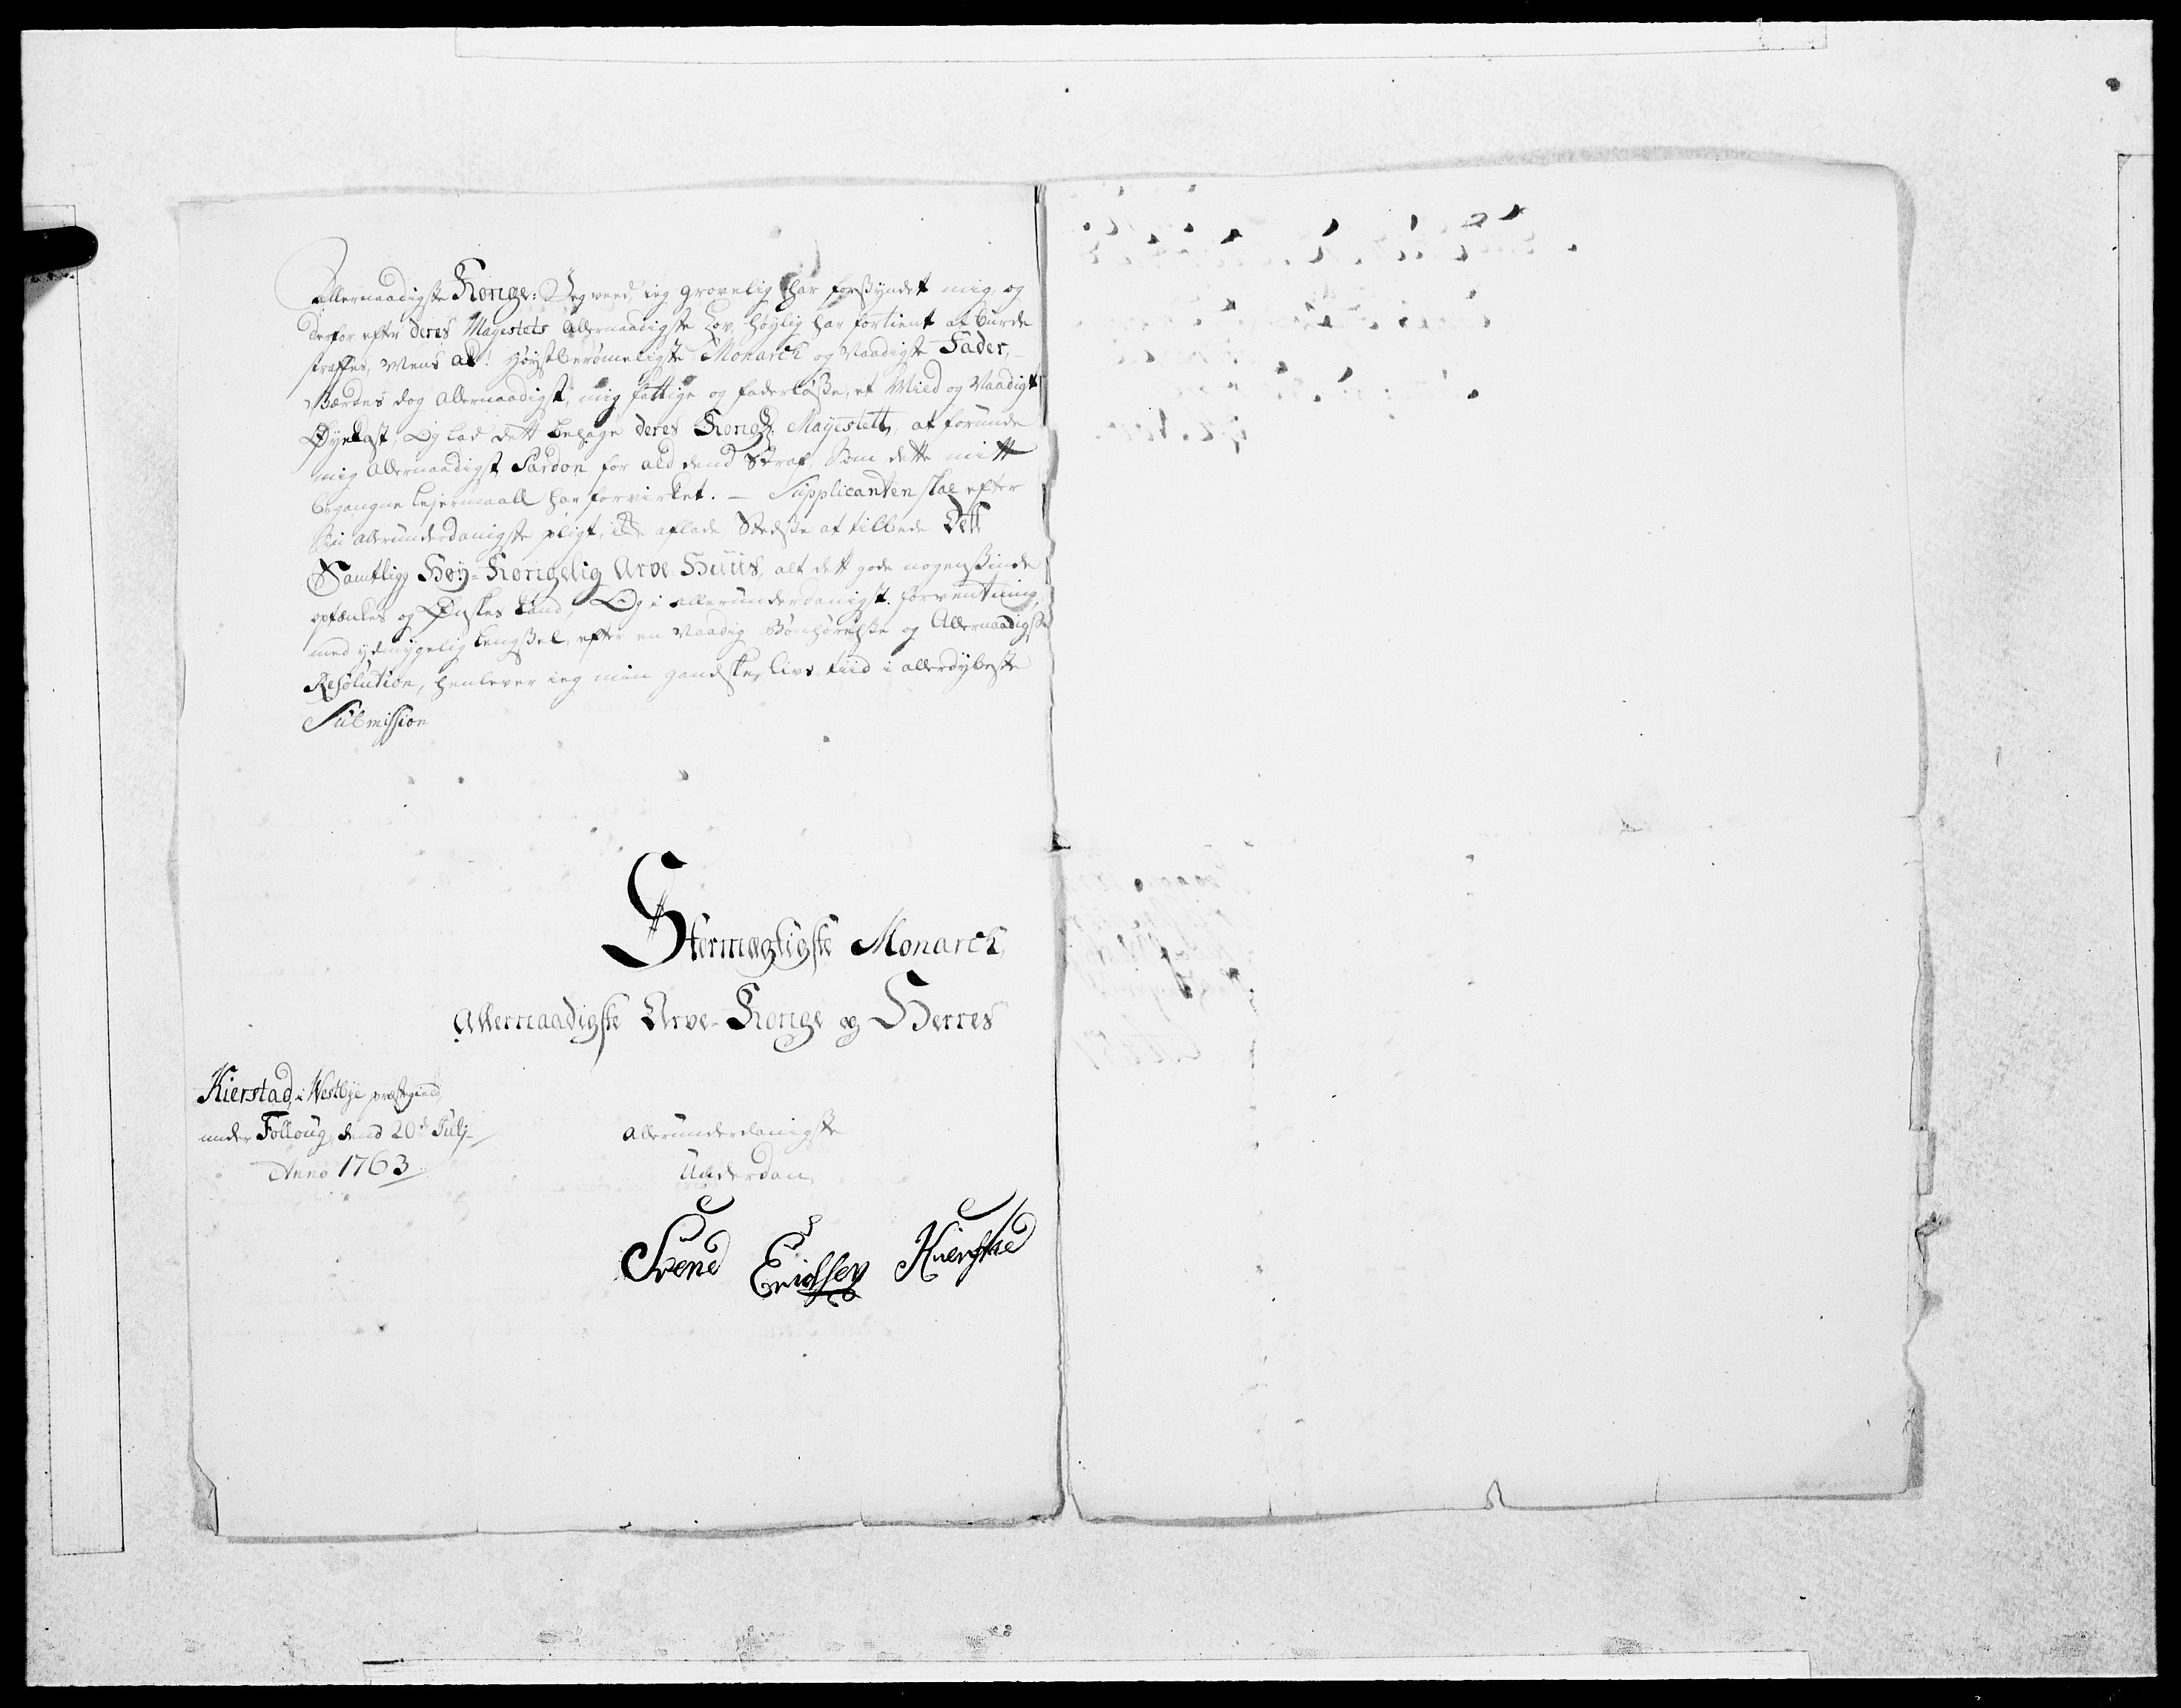 Allernaadigste Konge: Jeg veed, ieg grovelig har forsyndet mig, og
derfor efter deres Mayestets Allernaadigste Lov, høylig har fortient at burde
straffes, Mens ak! Høystberømeligste Monarch og Naadigste Fader,
Værdes dog allernaadigst, mig fattige og faderløsße, et Mild og Naadigt
Øyekast, Og lad dett behage deres Kongl: Mayestett, at forunde
mig Allernaadigst Pardon for ald dend Straf, som dette mitt
begangne Lejermaall har forvirket. — Supplicanten skal efter
sin allerunderdanigste pligt, ikke aflade Stedsße at tilbede Dett
Samtlige Høy-Kongelig Arve Huus, alt dett gode nogensinde
optænkes og Ønskes kand, Og i allerunderdanigst forventning,
med ydmygelig Lengßel, efter en Naadig Bønhørelße og Allernaadigste
Resolution, henlever ieg min gandske Livs-tiid i allerdybeste
Submission
Stormægtigste Monarch
Allernaadigste Arve-Konge og Herres
Kierstad, i Westbye præstegield
under Folloug, dend 20de Julj
Anno 1763
allerunderdanigste
Underdan
Svend Erichsen Kierstad